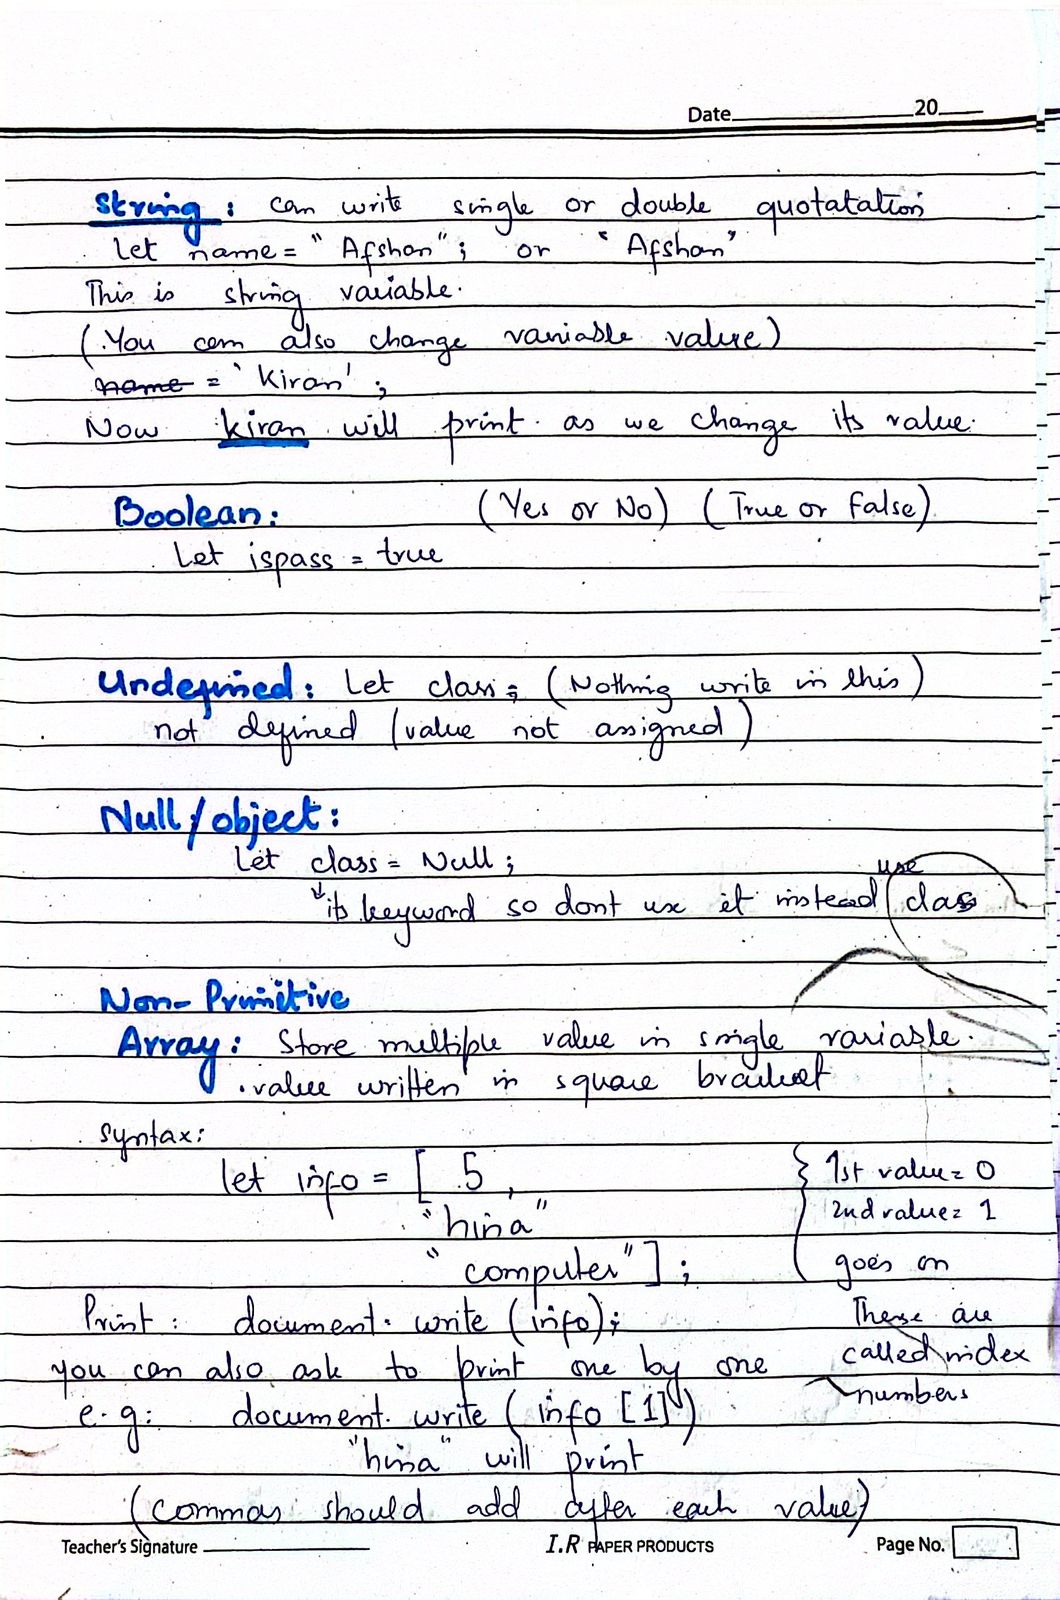 Date 20
String : can write single or double quotatation
Let name = "Afshan" ; or 'Afshan'
This is string variable.
(You can also change variable value)
name = 'Kiran' ;
Now kiran will print as we change its value.
Boolean: (Yes or No) (True or false)
Let ispass = true
Undefined: Let class; (Nothing write in this)
not defined (value not assigned)
Null/object:
Let class = Null ;
use
its keyword so dont use it instead class
Non-Primitive
Array: Store multiple value in single variable.
. value written in square
syntax:
let info = [ 5 ,
"hina"
"computer" ] ;
1st value = 0
2nd value = 1
goes on
These are
called index
numbers
Print : document. write (info);
you can also ask to print one by one
e.g: document. write ( info [1] )
"hina" will print
(Commas should add after each value)
Teacher's Signature I.R PAPER PRODUCTS Page No.